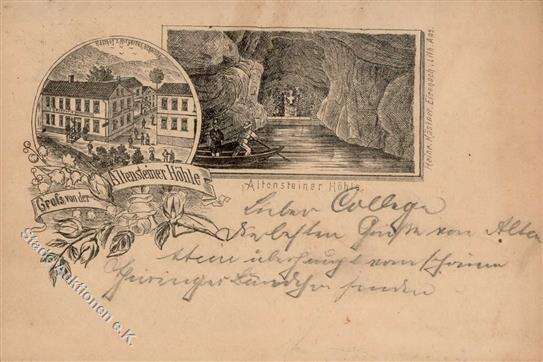 Gruß von der
Altensteiner Höhle
Altensteiner Höhle.
Lieber College
Die besten Grüße von Alten
stein überhaupt vom schönen
Thüringer Ländchen senden
Stade Auktionen e.K.